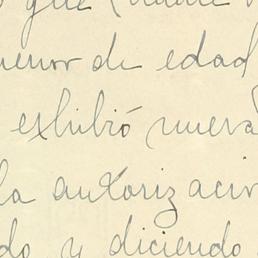 que
menor de edad
exhibió nueva
la autorizacion
do y diciendo